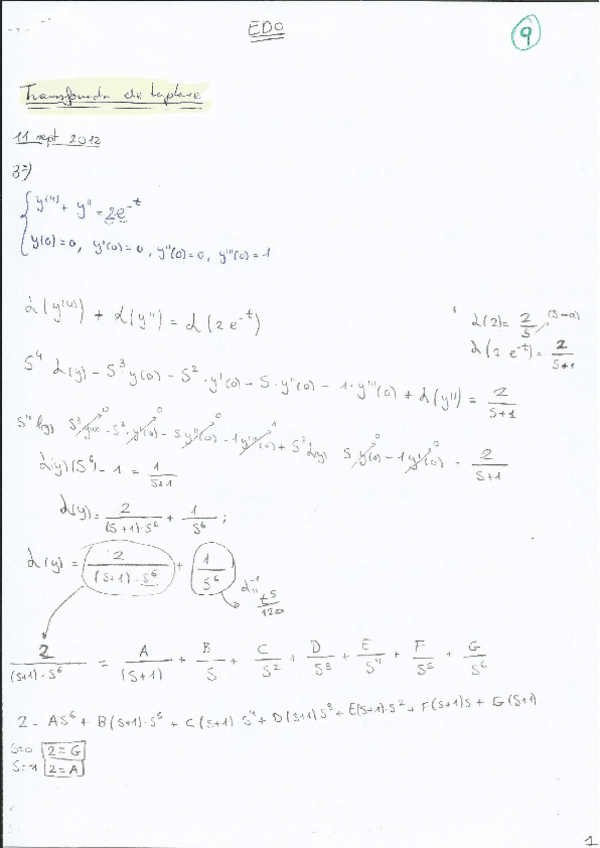 EDO
9
Transformada de Laplace
11 sept 2012
3=)
y⁽⁴⁾ + y'' = 2e^-t
y(0)=0, y'(0)=0, y''(0)=0, y'''(0)=1
L(y⁽⁴⁾) + L(y'') = L(2e^-t)
L(2) = 2/S (S-a)
L(2 e^-t) = 2/(S+1)
S⁴ L(y) - S³ y(0) - S² · y'(0) - S · y''(0) - 1 · y'''(0) + L(y'') = 2/(S+1)
S⁴ L(y) S³ y(0) - S² · y'(0) - S y''(0) - 1 y'''(0) + S² L(y) S y(0) - 1 y'(0) = 2/(S+1)
L(y) (S⁶) - 1 = 1/(S+1)
L(y) = 2/((S+1)·S⁶) + 1/S⁶ ;
L(y) = 2/((S+1)·S⁶) + 1/S⁶
L^-1 = t⁵/120
2/((S+1)·S⁶) = A/(S+1) + B/S + C/S² + D/S³ + E/S⁴ + F/S⁵ + G/S⁶
2 = AS⁶ + B(S+1)·S⁵ + C(S+1) S⁴ + D(S+1)S³ + E(S+1)·S² + F(S+1)S + G(S+1)
S=0 2=G
S=-1 2=A
1